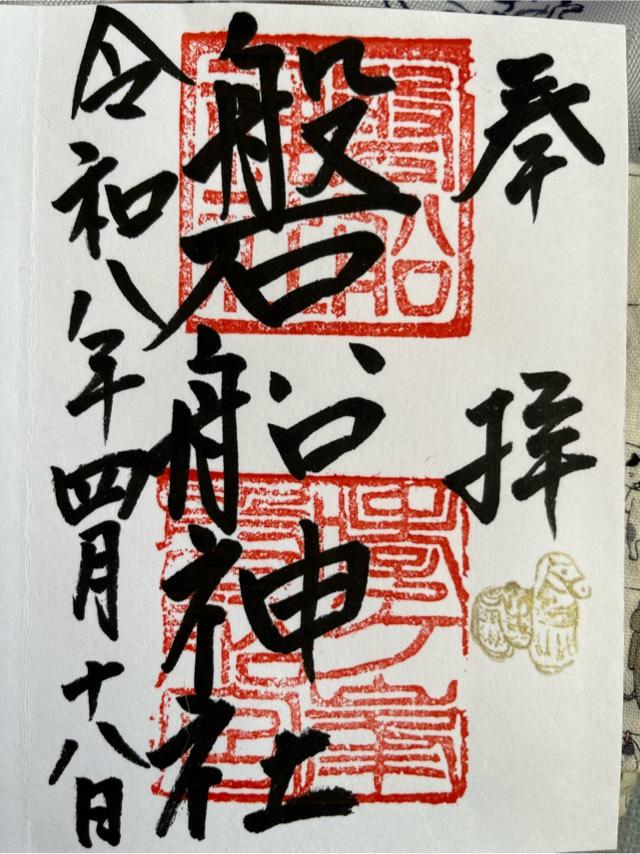 奉拝
磐船神社
令和八年四月十八日